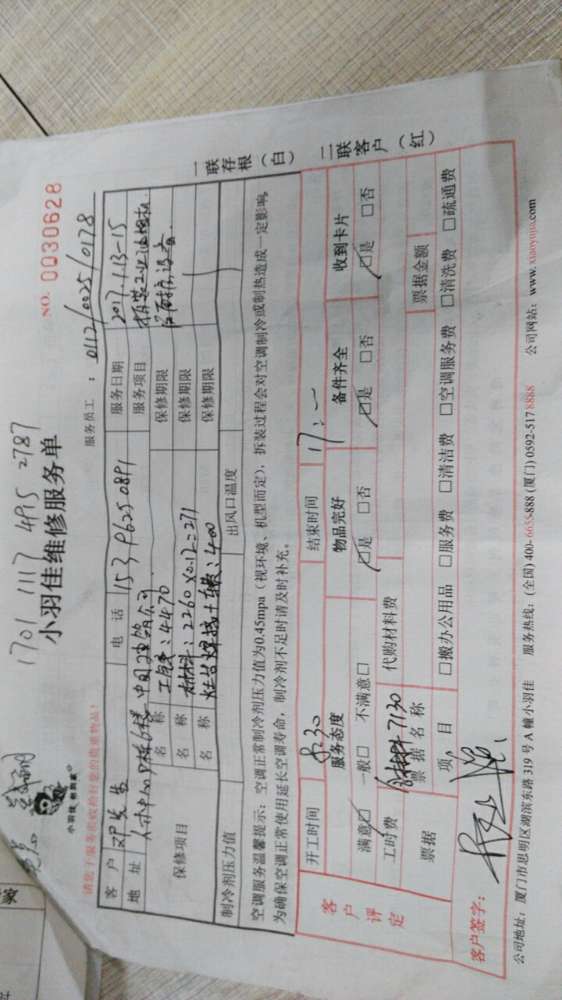 1701 1117 4915 2787
小羽佳维修服务单
NO. 0030628
小羽佳 老鹅家
请您于服务后收拾好您的贵重物品!
服务员工：0112/0025/0178
客户 邓先生 电话 153 9625 0891 服务日期 2017.1.13-15
地址 服务项目
保修项目 名称 工资：4470 保修期限
名称 材料：2260×0.12=271 保修期限
名称 保修期限
制冷剂压力值 出风口温度
空调服务温馨提示：空调正常制冷剂压力值为0.45mpa（视环境、机型而定），拆装过程会对空调制冷或制热造成一定影响，
为确保空调正常使用延长空调寿命，制冷剂不足时请及时补充。
一联存根（白） 二联客户（红）
客户评定
开工时间 8:30 结束时间 17:
服务态度 物品完好 备件齐全 收到卡片
满意□ 一般□ 不满意□ □是 □否 □是 □否 □是 □否
工时费 7130 代购材料费
票据 票据名称 票据金额
项目 □搬办公用品 □服务费 □清洁费 □空调服务费 □清洗费 □疏通费
客户签字：
公司地址：厦门市思明区湖滨东路 319 号 A 幢小羽佳 服务热线：(全国) 400-6655-888 (厦门) 0592-5178888 公司网站：www.xiaoyujia.com